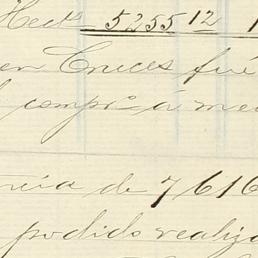 Hects 5255 12
en Cruces fué
compro á me
cia de 7616
podido realiza